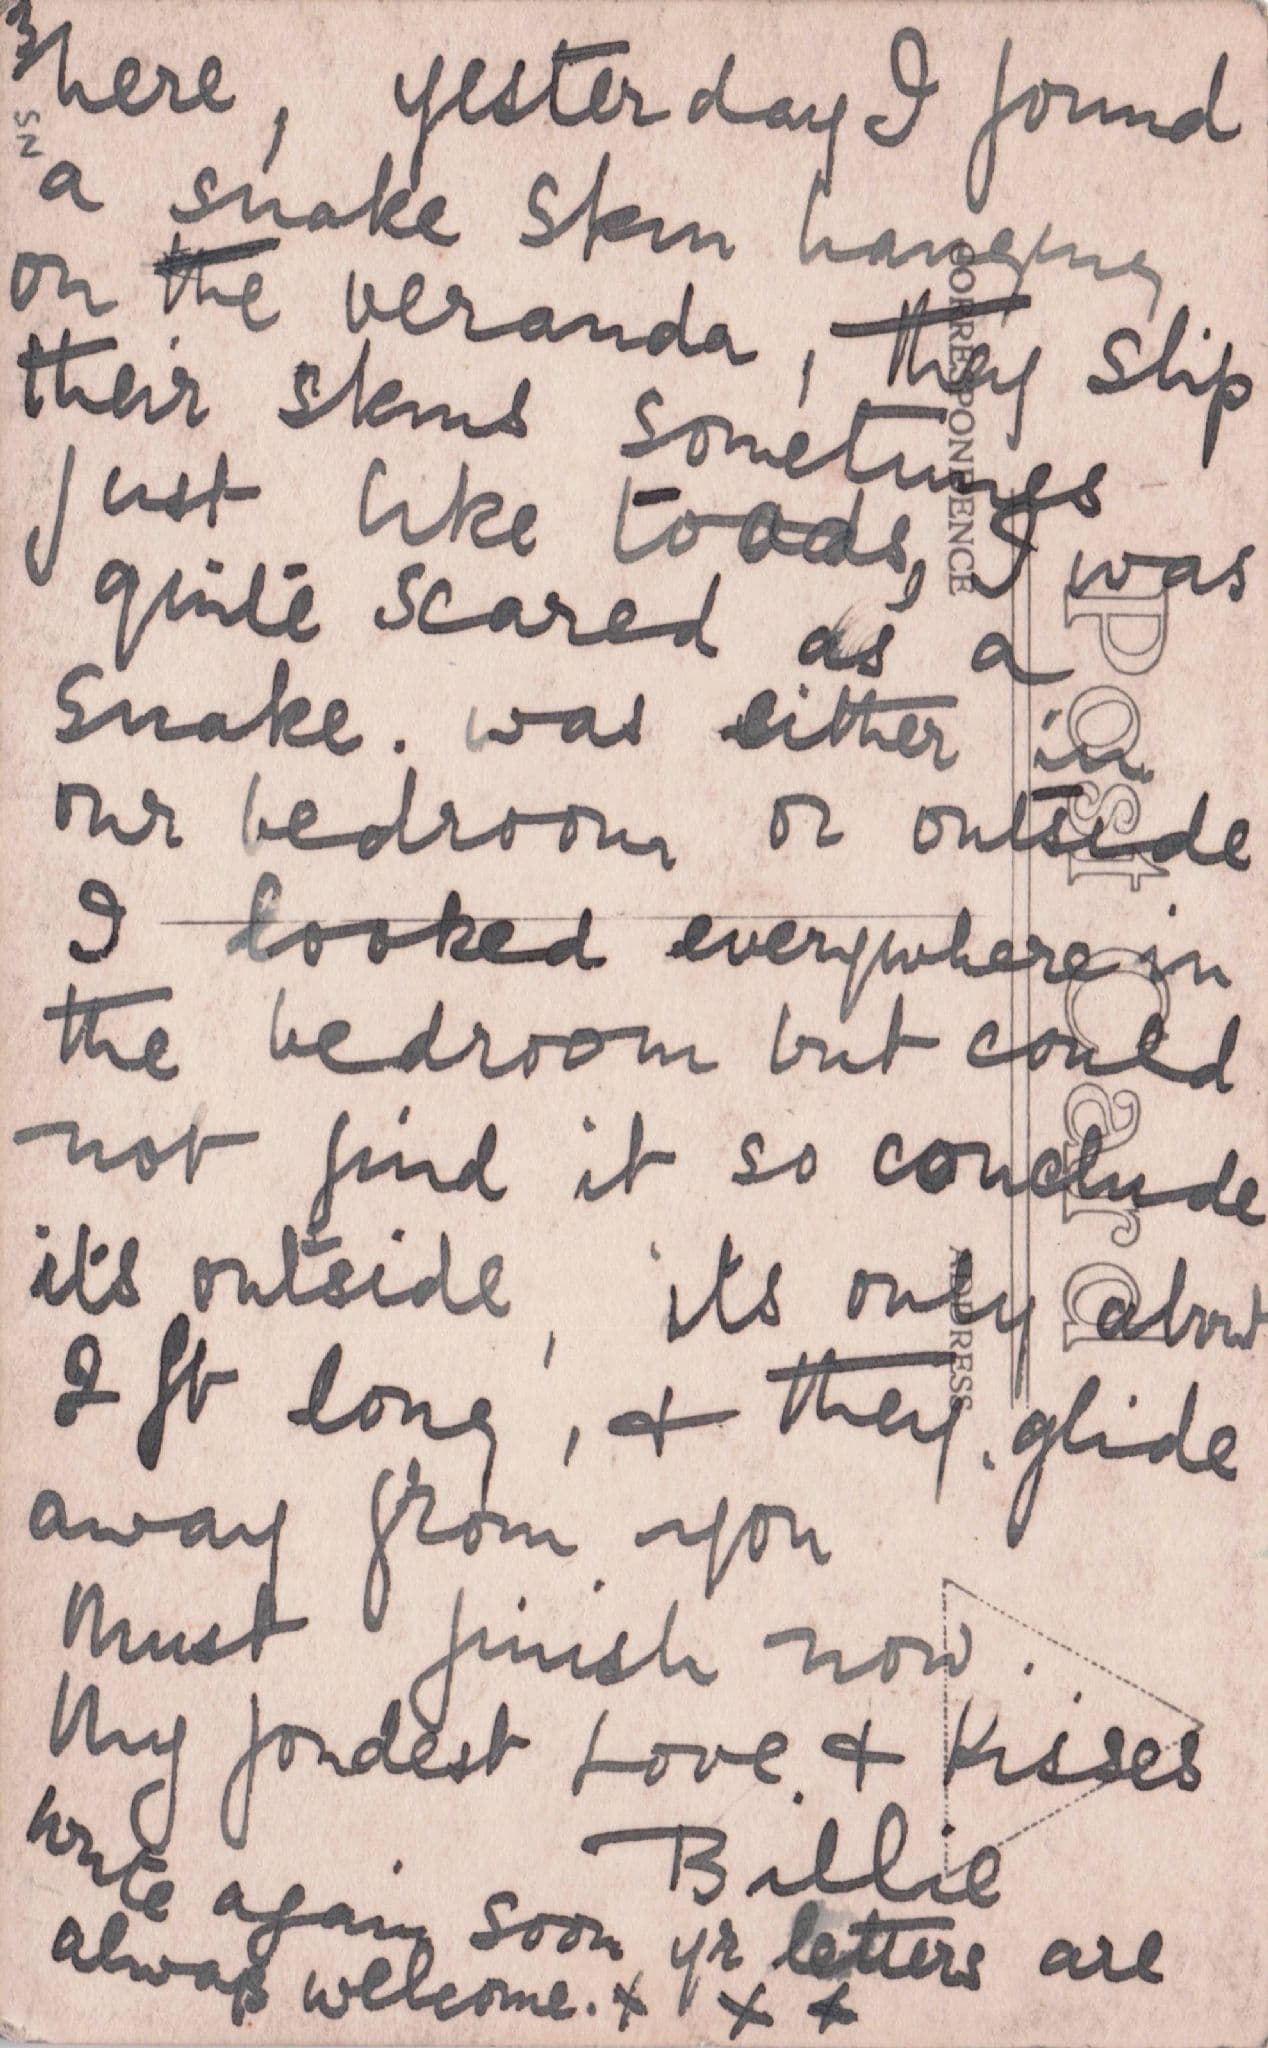 3
here, yesterday I found
SN
a snake skin hanging
on the veranda, they slip
their skins sometimes
just like toads, I was
quite scared as a
snake. was either in
our bedroom or outside
I looked everywhere in
the bedroom but could
not find it so conclude
it's outside, its only about
2 ft long, & they glide
away from you
Must finish now.
My fondest Love & Kisses
Billie
write again soon yr letters are
always welcome. x x x
CORRESPONDENCE
ADDRESS
Post Card